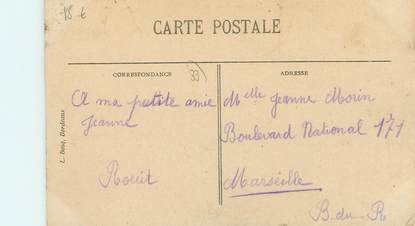 15 €
CARTE POSTALE
CORRESPONDANCE
33)
ADRESSE
A ma petite amie
Jeanne
L. Bosq, Bordeaux
Melle Jeanne Morin
Boulevard National 171
Marseille
B-du-R